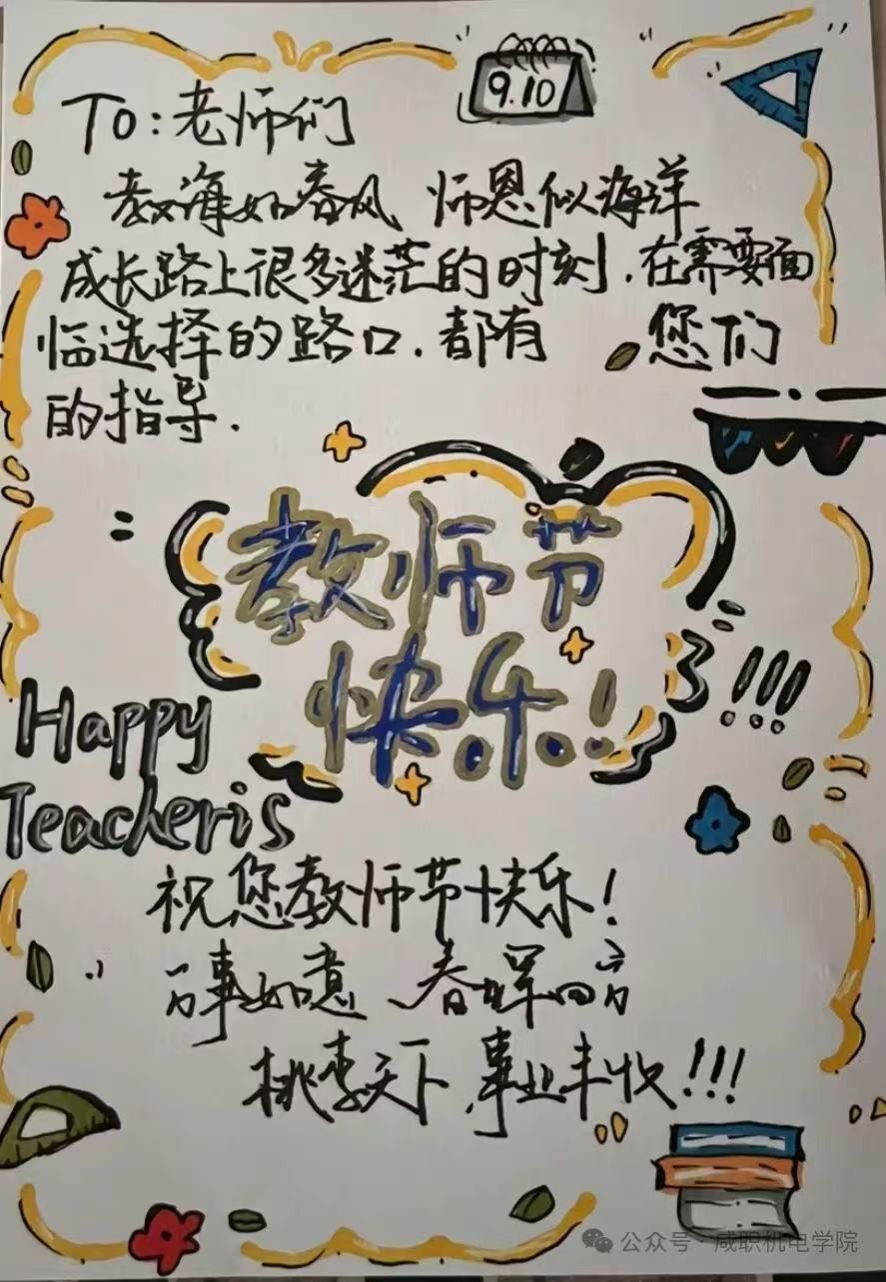 9.10
To:老师们
教海如春风 师恩似海洋
成长路上很多迷茫的时刻.在需要面
临选择的路口.都有 您们
的指导.
教师节
快乐!
!!!
Happy
Teacheris
祝您教师节快乐!
万事如意 春晖四方
桃李天下 事业丰收!!!
公众号·咸职机电学院